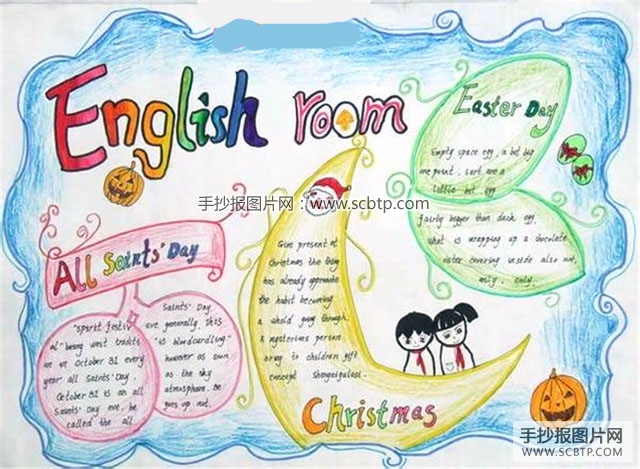 English room
Easter Day
Empty space egg, a bit big
me point, sort me a
little bit egg
fairly bigger than duck egg.
What is wrapping up a chocolate
outer covering inside also not,
only, only.
手抄报图片网:www.scbtp.com
All Saints' Day
"sparkt festiv
al" being west traditi
on on October 31 every
year all Saints' Day.
October 31 is an all
Saints' Day eve, be
called the all
Saints' Day
eve generally. This
"is bloodcurdling"
however as own
as the sky
atmosphere. Be
goes up not.
Give present at
Christmas the thing
has already approximate
the habit becoming
a whold gang though.
A mysterious person
bring to children gift
concept Shengeigulasi.
Christmas
手抄报图片网
SCBTP.COM